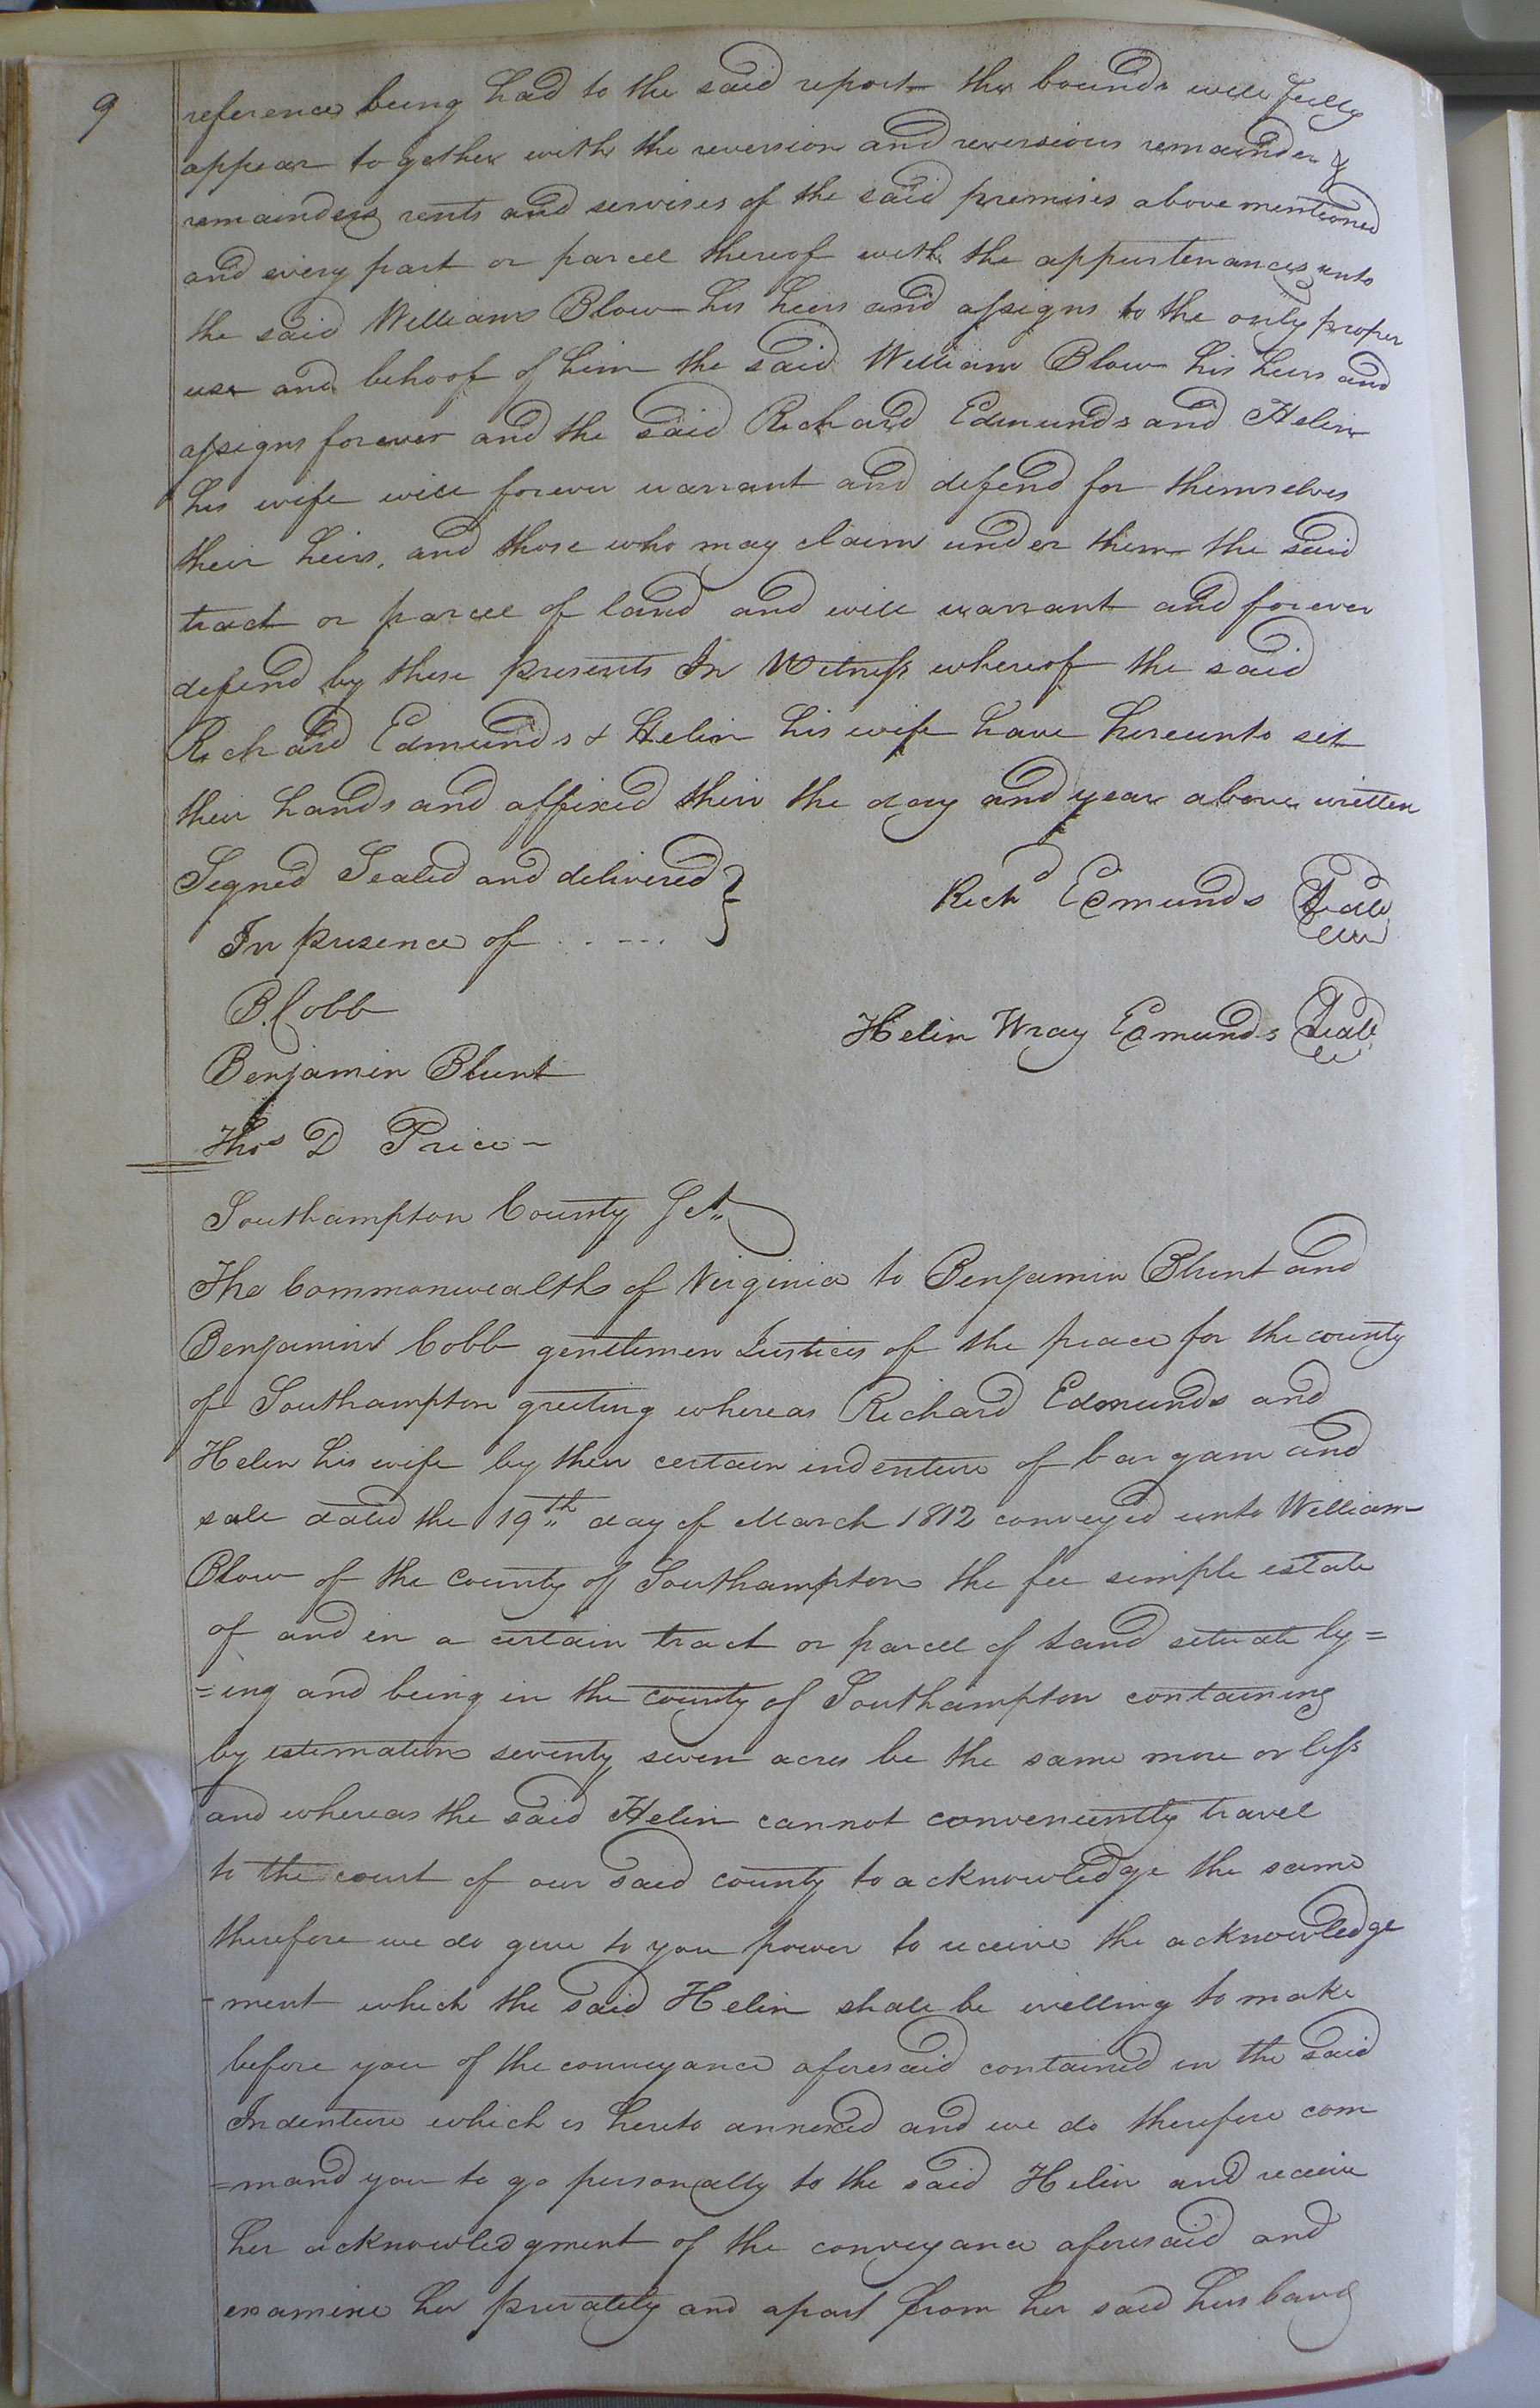 9
reference being had to the said report the bounds will fully
appear together with the reversion and reversions remainder &
remainders rents and servises of the said premises above mentioned
and every part or parcel thereof with the appurtenances unto
the said William Blow his heirs and assigns to the only proper
use and behoof of him the said William Blow his heirs and
assigns forever and the said Richard Edmunds and Helin
his wife will forever warrant and defend for themselves
their heirs, and those who may claim under them the said
tract or parcel of land and will warrant and forever
defend by these presents In Witness whereof the said
Richard Edmunds & Helin his wife have hereunto set
their hands and affixed their the day and year above written
Signed Sealed and delivered }
In presence of . . - - .
Richd Edmunds Seale
B. Cobb
Helin Wray Edmunds Seale
Benjamin Blunt
Thos D Price -
Southampton County Sct.
The Commonwealth of Virginia to Benjamin Blunt and
Benjamin Cobb gentlemen Justices of the peace for the county
of Southampton greeting whereas Richard Edmunds and
Helen his wife by their certain indenture of bargain and
sale dated the 19th day of March 1812 conveyed unto William
Blow of the county of Southampton the fee simple estate
of and in a certain tract or parcel of land situate ly=
=ing and being in the county of Southampton containing
by estimation seventy seven acres be the same more or less
and whereas the said Helin cannot conveniently travel
to the court of our said county to acknowledge the same
therefore we do give to you power to receive the acknowledge
-ment which the said Helin shall be willing to make
before you of the conveyance aforesaid contained in the said
Indenture which is hereto annexed and we do therefore com
=mand you to go personally to the said Helin and receive
her acknowledgment of the conveyance aforesaid and
examine her privately and apart from her said husband